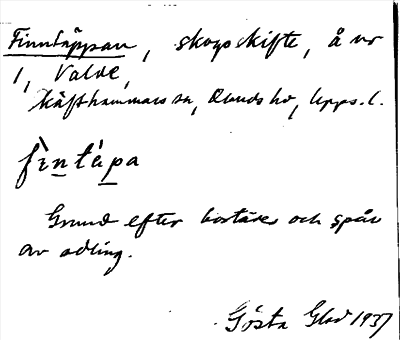 Finntäppan, skogsskifte, å nr
1, Valde,
Häfthammars sn, Olands hd, Upps. l.
fìntépa
Grund efter bostäder och spår
av odling.
Gösta Glad 1937